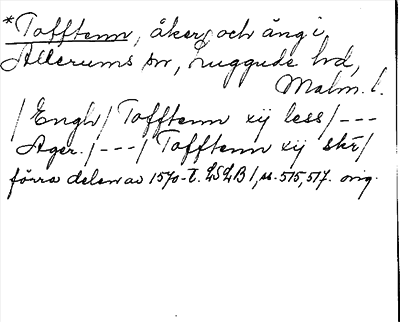 *Tofftenn, åker och äng i
Allerums sn, Luggude hd,
Malm. l.
/Engh/ Tofftenn xij less/---
Ager./---/ Tofftenn xij skr/
förra delen av 1570-t. LSLB 1, s. 515, 517. orig.